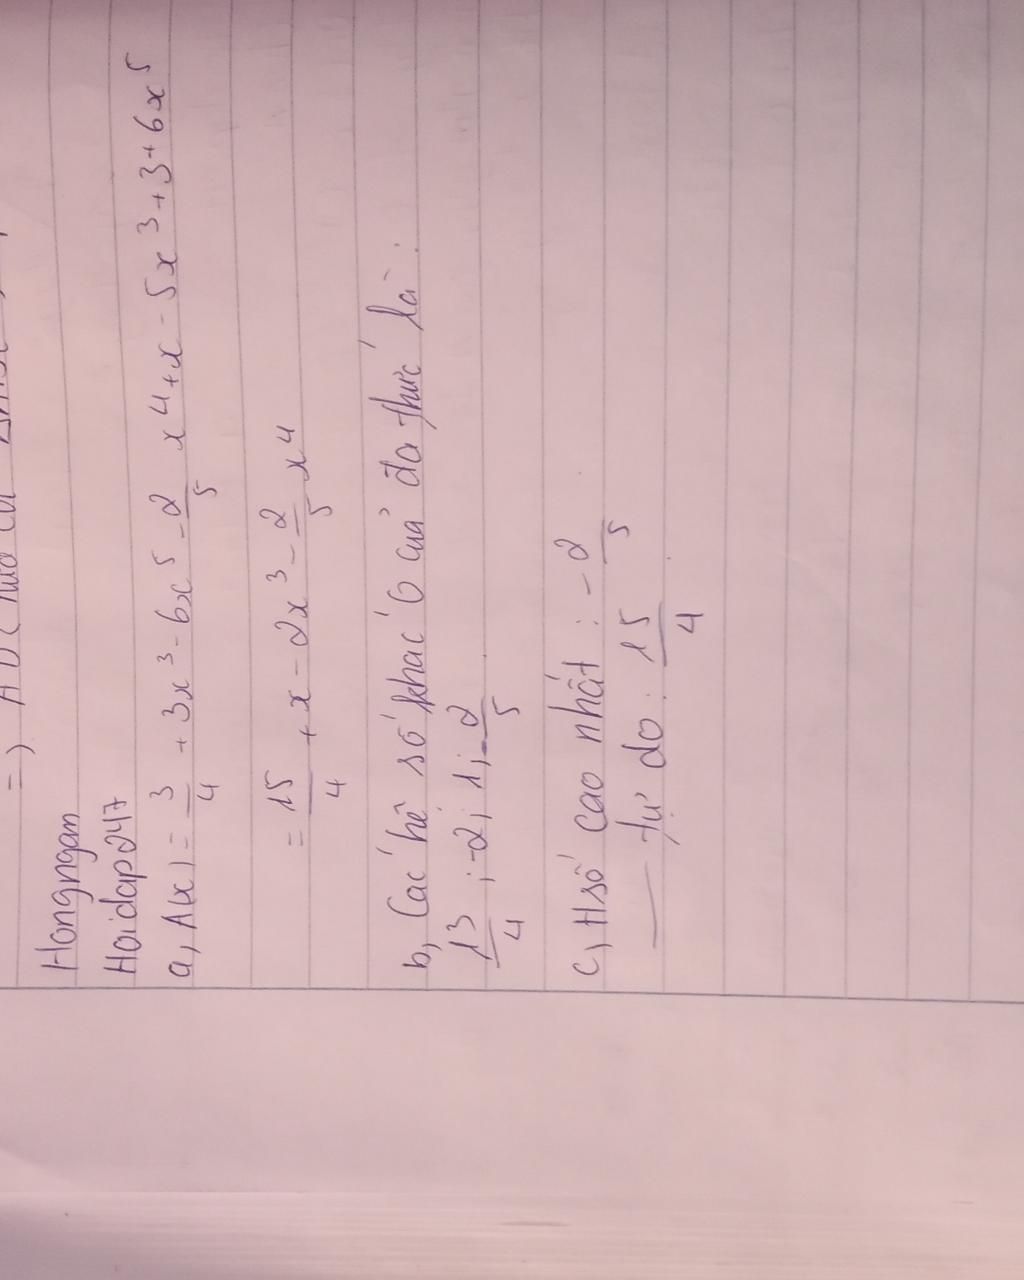 Hongngam
Hoidap247
a, A(x) = 3/4 + 3x³ - 6x⁵ - 2/5 x⁴ + x - 5x³ + 3 + 6x⁵
= 15/4 + x - 2x³ - 2/5 x⁴
b, Các hệ số khác 0 của đa thức là :
13/4 ; -2 ; 1 ; -2/5
c, Hsố cao nhất : - 2/5
— tự do : 15/4